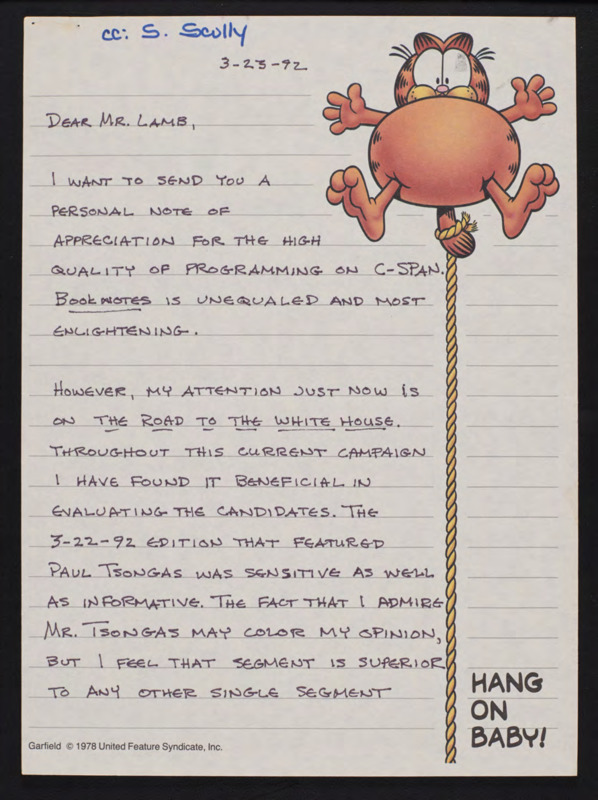 cc: S. Scully
3-23-92
DEAR MR. LAMB,
I WANT TO SEND YOU A
PERSONAL NOTE OF
APPRECIATION FOR THE HIGH
QUALITY OF PROGRAMMING ON C-SPAN.
BOOKNOTES IS UNEQUALED AND MOST
ENLIGHTENING.
HOWEVER, MY ATTENTION JUST NOW IS
ON THE ROAD TO THE WHITE HOUSE.
THROUGHOUT THIS CURRENT CAMPAIGN
I HAVE FOUND IT BENEFICIAL IN
EVALUATING THE CANDIDATES. THE
3-22-92 EDITION THAT FEATURED
PAUL TSONGAS WAS SENSITIVE AS WELL
AS INFORMATIVE. THE FACT THAT I ADMIRE
MR. TSONGAS MAY COLOR MY OPINION,
BUT I FEEL THAT SEGMENT IS SUPERIOR
TO ANY OTHER SINGLE SEGMENT
HANG
ON
BABY!
Garfield © 1978 United Feature Syndicate, Inc.